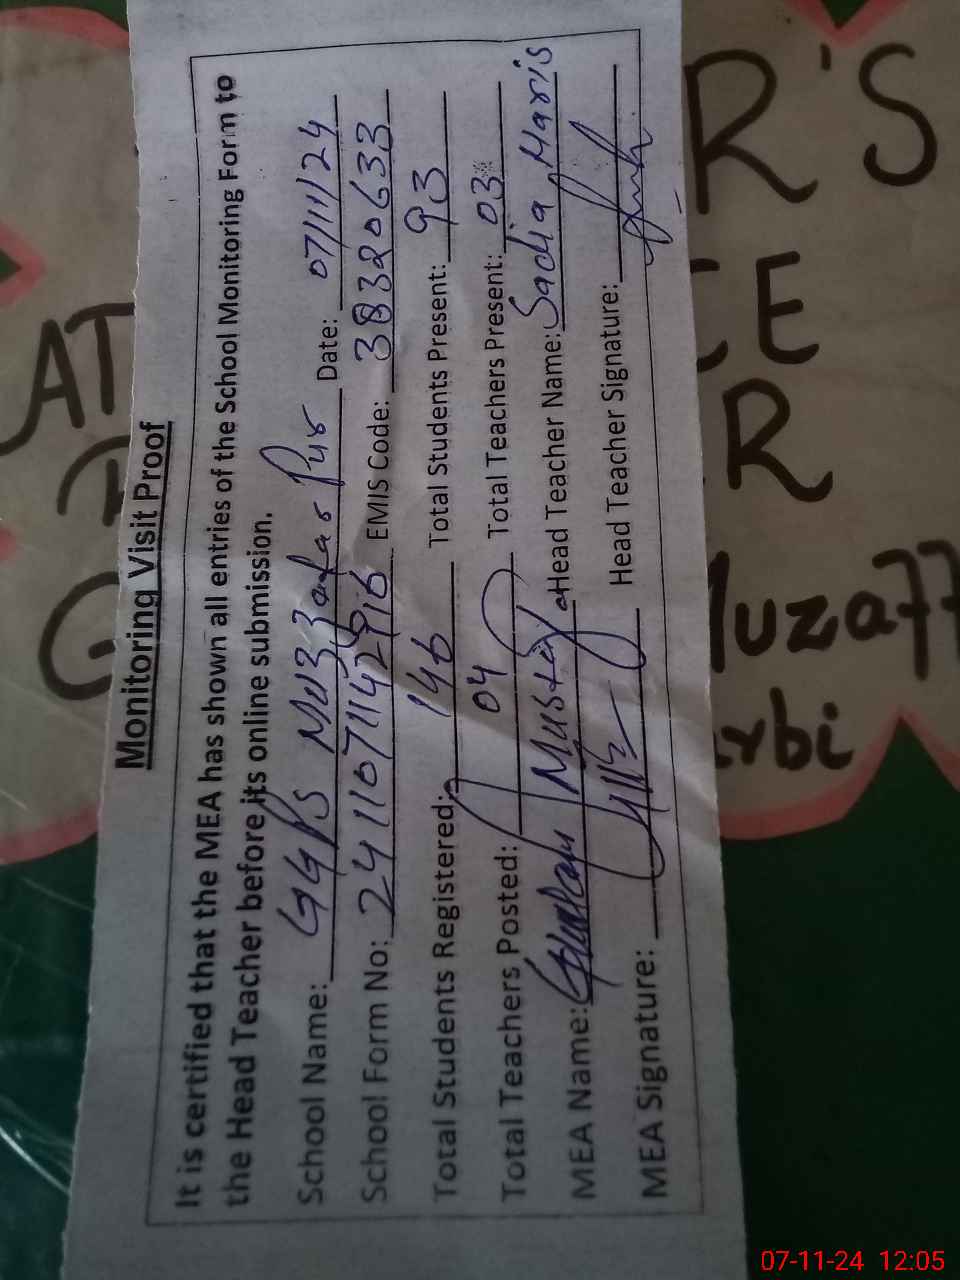 Monitoring Visit Proof
It is certified that the MEA has shown all entries of the School Monitoring Form to
the Head Teacher before its online submission.
School Name: GGPS Muzaafar Pur Date: 07/11/24
School Form No: EMIS Code: 38320633
Total Students Registered: 146 Total Students Present: 93
Total Teachers Posted: 04 Total Teachers Present: 03
MEA Name: Head Teacher Name: Sadia Haris
MEA Signature: Head Teacher Signature:
R'S
AT CE
R
Muzaff
rbi
07-11-24 12:05